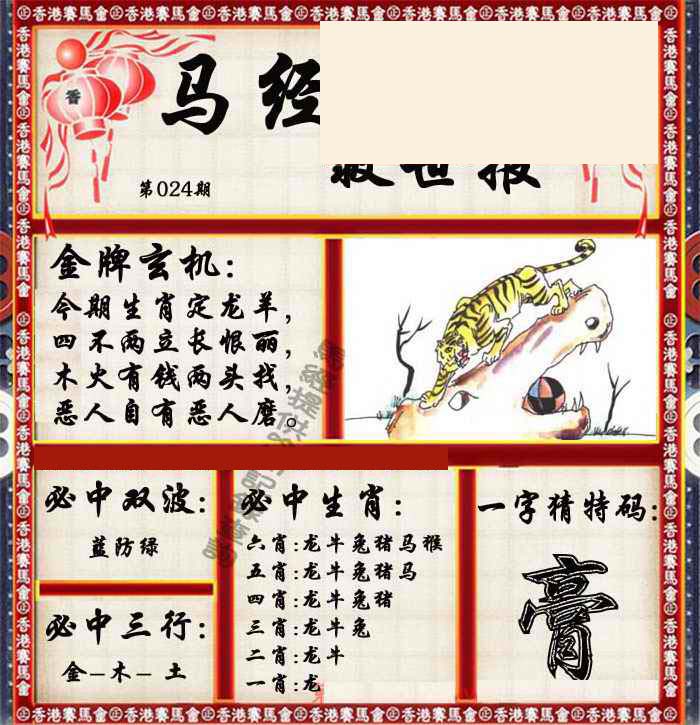 香港賽馬會
香
马经
救世报
第024期
金牌玄机:
今期生肖定龙羊,
四不两立长恨丽,
木火有钱两头找,
恶人自有恶人磨。
必中双波:
蓝防绿
必中三行:
金-木-土
必中生肖:
六肖:龙牛兔猪马猴
五肖:龙牛兔猪马
四肖:龙牛兔猪
三肖:龙牛兔
二肖:龙牛
一肖:龙
一字猜特码:
膏